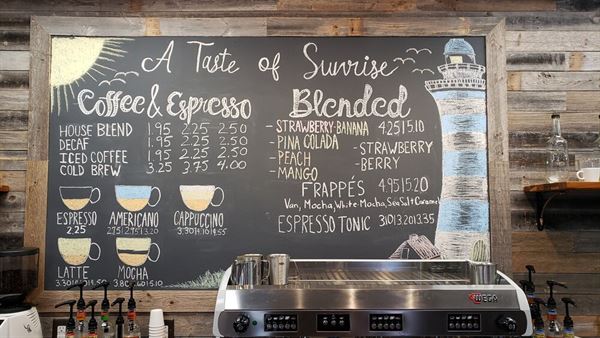 A Taste of Sunrise
Coffee & Espresso
HOUSE BLEND 1.95 2.25 2.50
DECAF 1.95 2.25 2.50
ICED COFFEE 1.95 2.25 2.50
COLD BREW 3.25 3.75 4.00
ESPRESSO
2.25
AMERICANO
CAPPUCCINO
LATTE
MOCHA
Blended
- STRAWBERRY-BANANA 4.25 | 5.10
- PINA COLADA
- PEACH
- MANGO
- STRAWBERRY
- BERRY
FRAPPÉS 4.95 | 5.20
Van, Mocha, White Mocha, Sea Salt & Caramel
ESPRESSO TONIC 3.10 | 3.20 | 3.35
WEGA